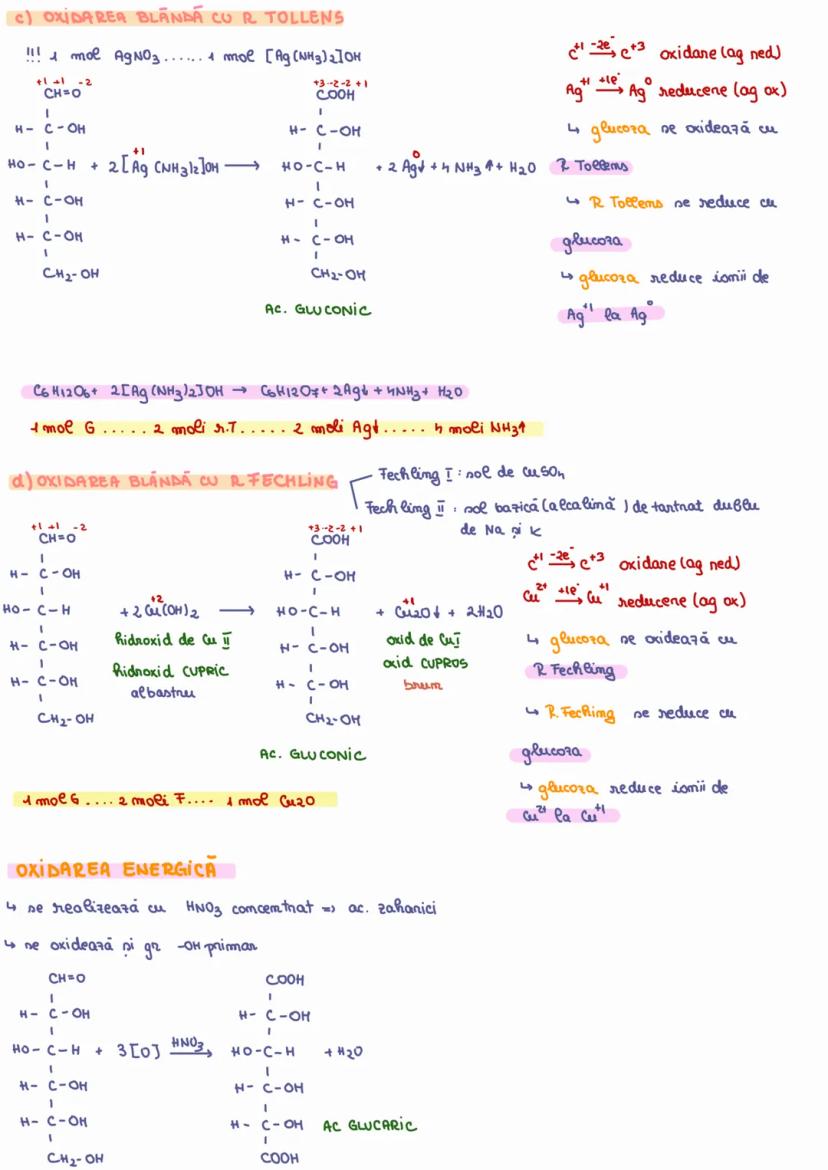 c) OXIDAREA BLÂNDĂ CU R TOLLENS
!!! 1 mol AgNO3 ...... 1 mol [Ag(NH3)2]OH
+1 +1 -2
CH=O
H- C-OH
HO- C-H + 2[Ag(NH3)2]OH →
+1
H- C-OH
H- C-OH
CH2-OH
+3 -2 -2 +1
COOH
H- C-OH
HO-C-H + 2 Ag↓ + 4 NH3↑ + H2O
0
H- C-OH
H- C-OH
CH2-OH
AC. GLUCONIC
C+1 -2e-→ C+3 oxidare (ag red)
Ag+1 +1e-→ Ag0 reducere (ag ox)
↳ glucoza se oxidează cu
R Tollens
↳ R Tollens se reduce cu
glucoza
↳ glucoza reduce ionii de
Ag+1 la Ag0
C6H12O6 + 2[Ag(NH3)2]OH → C6H12O7 + 2Ag↓ + 4NH3 + H2O
1 mol G ..... 2 moli r.T ..... 2 moli Ag↓ ..... 4 moli NH3↑
d) OXIDAREA BLÂNDĂ CU R FECHLING
Fechling I : sol de CuSO4
Fechling II : sol bazică (alcalină) de tartrat dublu
de Na și K
+1 +1 -2
CH=O
H- C-OH
HO- C-H + 2 Cu(OH)2 →
+2
H- C-OH
H- C-OH
CH2-OH
hidroxid de Cu II
hidroxid CUPRIC
albastru
+3 -2 -2 +1
COOH
H- C-OH
HO-C-H + Cu2O↓ + 2H2O
+1
H- C-OH
H- C-OH
CH2-OH
oxid de Cu I
oxid CUPROS
brum
AC. GLUCONIC
C+1 -2e-→ C+3 oxidare (ag red)
Cu2+ +1e-→ Cu+1 reducere (ag ox)
↳ glucoza se oxidează cu
R Fechling
↳ R. Feching se reduce cu
glucoza
↳ glucoza reduce ionii de
Cu2+ la Cu+1
1 mol G .... 2 moli F .... 1 mol Cu2O
OXIDAREA ENERGICĂ
↳ se realizează cu HNO3 concentrat => ac. zaharici
↳ se oxidează și gr -OH primar
CH=O
H- C-OH
HO- C-H + 3[O] HNO3→
H- C-OH
H- C-OH
CH2-OH
COOH
H- C-OH
HO-C-H + H2O
H- C-OH
H- C-OH AC GLUCARIC
COOH